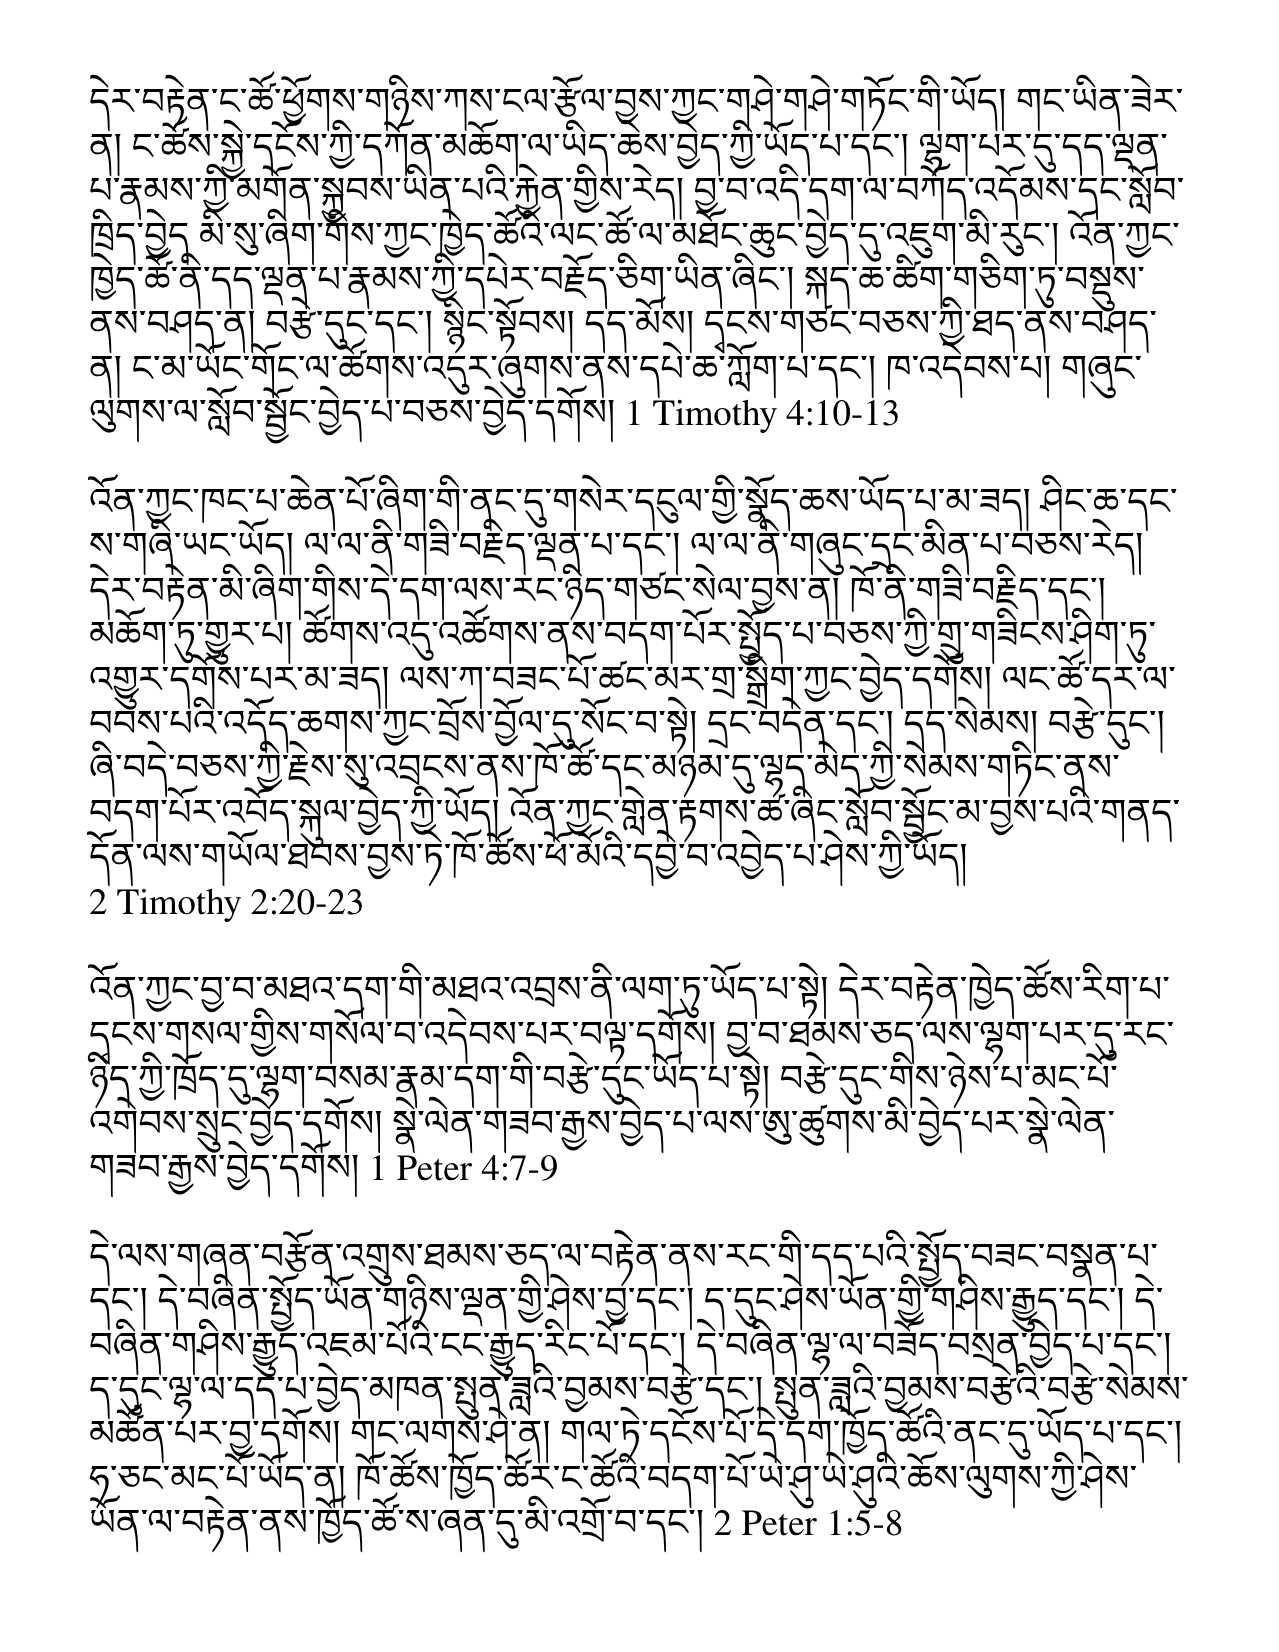 དེར་བརྟེན་ང་ཚོ་ཕྱོགས་གཉིས་ཀས་ངལ་རྩོལ་བྱས་ཀྱང་གཤེ་གཤེ་གཏོང་གི་ཡོད། གང་ཡིན་ཟེར་
ན། ང་ཚོས་སྐྱེ་དངོས་ཀྱི་དཀོན་མཆོག་ལ་ཡིད་ཆེས་བྱེད་ཀྱི་ཡོད་པ་དང་། ལྷག་པར་དུ་དད་ལྡན་
པ་རྣམས་ཀྱི་མགོན་སྐྱབས་ཡིན་པའི་རྐྱེན་གྱིས་རེད། བྱ་བ་འདི་དག་ལ་བཀོད་འདོམས་དང་སློབ་
ཁྲིད་བྱེད མི་སུ་ཞིག་གིས་ཀྱང་ཁྱེད་ཚོའི་ལང་ཚོ་ལ་མཐོང་ཆུང་བྱེད་དུ་འཇུག་མི་རུང་། འོན་ཀྱང་
ཁྱེད་ཚོ་ནི་དད་ལྡན་པ་རྣམས་ཀྱི་དཔེར་བརྗོད་ཅིག་ཡིན་ཞིང་། སྐད་ཆ་ཚིག་གཅིག་ཏུ་བསྡུས་
ནས་བཤད་ན། བརྩེ་དུང་དང་། སྙིང་སྟོབས། དད་མོས། དྭངས་གཙང་བཅས་ཀྱི་ཐད་ནས་བཤད་
ན། ང་མ་ཡོང་གོང་ལ་ཚོགས་འདུར་ཞུགས་ནས་དཔེ་ཆ་ཀློག་པ་དང་། ཁ་འདེབས་པ། གཞུང་
ལུགས་ལ་སློབ་སྦྱོང་བྱེད་པ་བཅས་བྱེད་དགོས། 1 Timothy 4:10-13
འོན་ཀྱང་ཁང་པ་ཆེན་པོ་ཞིག་གི་ནང་དུ་གསེར་དངུལ་གྱི་སྣོད་ཆས་ཡོད་པ་མ་ཟད། ཤིང་ཆ་དང་
ས་གཞི་ཡང་ཡོད། ལ་ལ་ནི་གཟི་བརྗིད་ལྡན་པ་དང་། ལ་ལ་ནི་གཞུང་དྲང་མིན་པ་བཅས་རེད།
དེར་བརྟེན་མི་ཞིག་གིས་དེ་དག་ལས་རང་ཉིད་གཙང་སེལ་བྱས་ན། ཁོ་ནི་གཟི་བརྗིད་དང་།
མཆོག་ཏུ་གྱུར་པ། ཚོགས་འདུ་འཚོགས་ནས་བདག་པོར་སྤྱོད་པ་བཅས་ཀྱི་གྲུ་གཟིངས་ཤིག་ཏུ་
འགྱུར་དགོས་པར་མ་ཟད། ལས་ཀ་བཟང་པོ་ཚང་མར་གྲ་སྒྲིག་ཀྱང་བྱེད་དགོས། ལང་ཚོ་དར་ལ་
བབས་པའི་འདོད་ཆགས་ཀྱང་བྲོས་བྱོལ་དུ་སོང་བ་སྟེ། དྲང་བདེན་དང་། དད་སེམས། བརྩེ་དུང་།
ཞི་བདེ་བཅས་ཀྱི་རྗེས་སུ་འབྲངས་ནས་ཁོ་ཚོ་དང་མཉམ་དུ་ལྷད་མེད་ཀྱི་སེམས་གཏིང་ནས་
བདག་པོར་འབོད་སྐུལ་བྱེད་ཀྱི་ཡོད། འོན་ཀྱང་གླེན་རྟགས་ཚ་ཞིང་སློབ་སྦྱོང་མ་བྱས་པའི་གནད་
དོན་ལས་གཡོལ་ཐབས་བྱས་ཏེ་ཁོ་ཚོས་ཕོ་མོའི་དབྱེ་བ་འབྱེད་པ་ཤེས་ཀྱི་ཡོད།
2 Timothy 2:20-23
འོན་ཀྱང་བྱ་བ་མཐའ་དག་གི་མཐའ་འབྲས་ནི་ལག་ཏུ་ཡོད་པ་སྟེ། དེར་བརྟེན་ཁྱེད་ཚོས་རིག་པ་
དྭངས་གསལ་གྱིས་གསོལ་བ་འདེབས་པར་བལྟ་དགོས། བྱ་བ་ཐམས་ཅད་ལས་ལྷག་པར་དུ་རང་
ཉིད་ཀྱི་ཁྲོད་དུ་ལྷག་བསམ་རྣམ་དག་གི་བརྩེ་དུང་ཡོད་པ་སྟེ། བརྩེ་དུང་གིས་ཉེས་པ་མང་པོ་
འགེབས་སྲུང་བྱེད་དགོས། སྣེ་ལེན་གཟབ་རྒྱས་བྱེད་པ་ལས་ཨུ་ཚུགས་མི་བྱེད་པར་སྣེ་ལེན་
གཟབ་རྒྱས་བྱེད་དགོས། 1 Peter 4:7-9
དེ་ལས་གཞན་བརྩོན་འགྲུས་ཐམས་ཅད་ལ་བརྟེན་ནས་རང་གི་དད་པའི་སྤྱོད་བཟང་བསྣན་པ་
དང་། དེ་བཞིན་སྤྱོད་ཡོན་གཉིས་ལྡན་གྱི་ཤེས་བྱ་དང་། ད་དུང་ཤེས་ཡོན་གྱི་གཤིས་རྒྱུད་དང་། དེ་
བཞིན་གཤིས་རྒྱུད་འཇམ་པོའི་ངང་རྒྱུད་རིང་པོ་དང་། དེ་བཞིན་ལྷ་ལ་བཟོད་བསྲན་བྱེད་པ་དང་།
ད་དུང་ལྷ་ལ་དད་པ་བྱེད་མཁན་སྤུན་ཟླའི་བྱམས་བརྩེ་དང་། སྤུན་ཟླའི་བྱམས་བརྩེའི་བརྩེ་སེམས་
མཚོན་པར་བྱ་དགོས། གང་ལགས་ཤེ་ན། གལ་ཏེ་དངོས་པོ་དེ་དག་ཁྱོད་ཚོའི་ནང་དུ་ཡོད་པ་དང་།
ཧ་ཅང་མང་པོ་ཡོད་ན། ཁོ་ཚོས་ཁྱོད་ཚོར་ང་ཚོའི་བདག་པོ་ཡེ་ཤུ་ཡེ་ཤུའི་ཆོས་ལུགས་ཀྱི་ཤེས་
ཡོན་ལ་བརྟེན་ནས་ཁྱོད་ཚོ་ས་ཞན་དུ་མི་འགྲོ་བ་དང་། 2 Peter 1:5-8